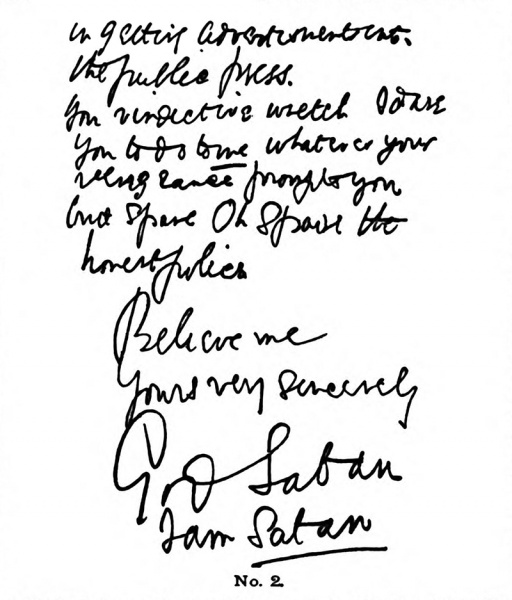 in getting advertisements in
the public press.
You vindictive wretch I dare
you to do to me whatever your
vengeance prompts you
but spare Oh Spare the
honest police
Believe me
Yours very Sincerely
God Satan
I am Satan
No. 2